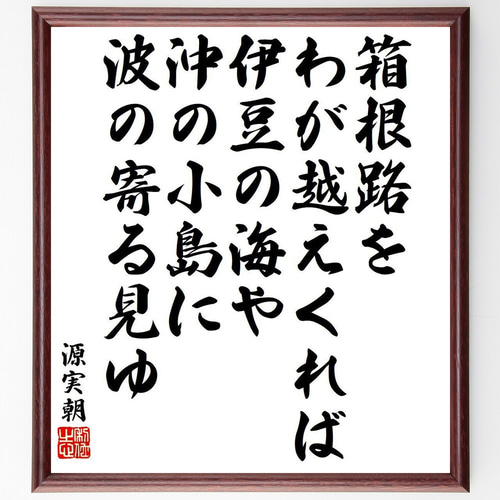 箱根路を
わが越えくれば
伊豆の海や
沖の小島に
波の寄る見ゆ
源実朝